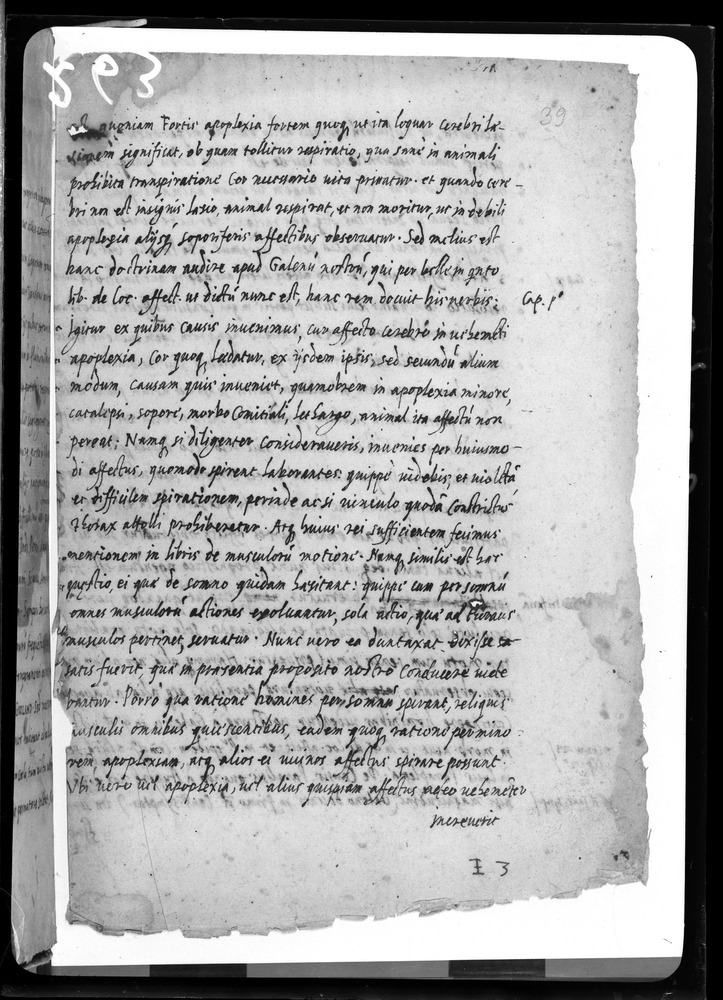 293
39
quoniam Fortis apoplexia fortem quoq, ut ita loquar cerebri læ-
sionem significat, ob quam tollitur respiratio, qua sane in animali
prohibita transpiratione Cor necessario uita priuatur. et quando cere-
bri non est insignis lasio, animal respirat, et non moritur, ut in debili
apoplexia alijsq, soporiferis affectibus obseruatur. Sed melius est
hanc doctrinam audire apud Galenũ nostrũ, qui per belle in qnto
lib. de Loc. affect. ut dictũ nunc est, hanc rem docuit his uerbis: Cap. pº
Igitur ex quibus causis inuenimus, cur affecto Cerebro in uehemẽti
apoplexia, Cor quoq, lædatur, ex ijsdem ipsis, sed secundũ alium
modum, causam quis inueniet, quamobrem in apoplexia minore,
catalepsi, sopore, morbo Comitiali, lethargo, animal ita affectũ non
pereat: Namq, si diligenter consideraueris, inuenies per huiusmo-
di affectus, quomodo spirent laborantes: quippe uidebis, et uiolẽtã
et difficilem spirationem, perinde ac si uinculo quodã Constrictus
thorax attolli prohiberetur. Atq, huius rei sufficientem fecimus
mentionem in libris de musculorũ motione. Namq, similis est hæc
quęstio, ei quæ de somno quidam hæsitant: quippe cum per somnũ
omnes musculorũ actiones exoluantur, sola actio, quæ ad thoracis
musculos pertinet, seruatur. Nunc uero ea duntaxat dixisse sa
satis fuerit, quæ in præsentia proposito nostro Conducere uide
bantur. Porro qua ratione homines per somnũ spirant, reliquis
musculis omnibus quiescentibus, eadem quoq, ratione per mino-
rem, apoplexiam, atq, alios ei uicinos affectus spirare possunt.
Vbi uero uel apoplexia, uel alius quispiam affectus adeo uehemẽter
increuerit
I 3